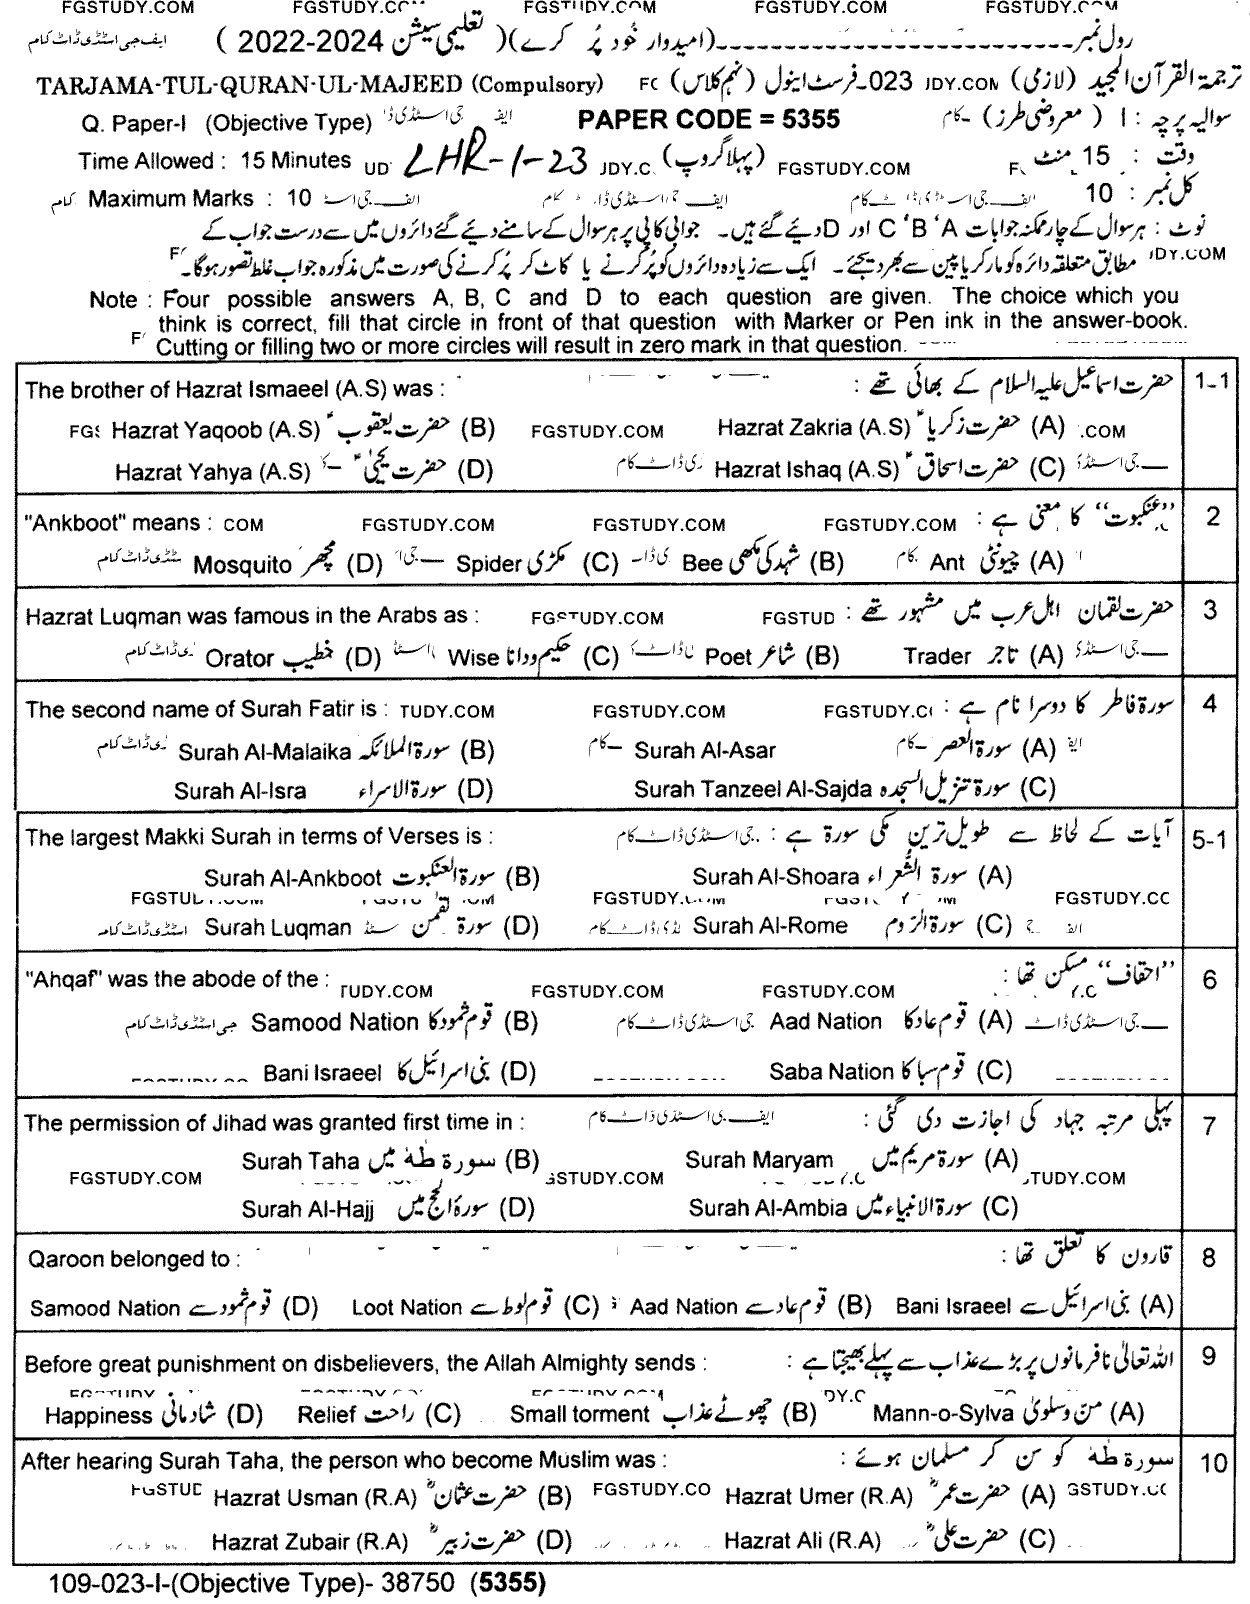 FGSTUDY.COM FGSTUDY.COM FGSTUDY.COM FGSTUDY.COM
رول نمبر ـــــــــــــــــ (امیدوار خود پُر کرے) (تعلیمی سیشن 2022-2024 ) ایف جی اسٹڈی ڈاٹ کام
ترجمۃ القرآن المجید (لازمی) JDY.COM 023-فرسٹ اینول (نہم کلاس) TARJAMA-TUL-QURAN-UL-MAJEED (Compulsory)
سوالیہ پرچہ : I ( معروضی طرز) PAPER CODE = 5355 Q. Paper-I (Objective Type)
وقت : 15 منٹ FGSTUDY.COM (پہلا گروپ) LHR-1-23 Time Allowed : 15 Minutes
کل نمبر : 10 Maximum Marks : 10
نوٹ : ہر سوال کے چار ممکنہ جوابات A ، B ، C اور D دیے گئے ہیں۔ جوابی کاپی پر ہر سوال کے سامنے دیے گئے دائروں میں سے درست جواب کے
مطابق متعلقہ دائرہ کو مارکر یا پین سے بھر دیجئے۔ ایک سے زیادہ دائروں کو پُر کرنے یا کاٹ کر پُر کرنے کی صورت میں مذکورہ جواب غلط تصور ہوگا۔
Note : Four possible answers A, B, C and D to each question are given. The choice which you
think is correct, fill that circle in front of that question with Marker or Pen ink in the answer-book.
Cutting or filling two or more circles will result in zero mark in that question.
The brother of Hazrat Ismaeel (A.S) was : حضرت اسماعیل علیہ السلام کے بھائی تھے : 1-1
Hazrat Yaqoob (A.S) حضرت یعقوبؑ (B) FGSTUDY.COM Hazrat Zakria (A.S) حضرت زکریاؑ (A)
Hazrat Yahya (A.S) حضرت یحییٰؑ (D) Hazrat Ishaq (A.S) حضرت اسحاقؑ (C)
"Ankboot" means : COM FGSTUDY.COM FGSTUDY.COM FGSTUDY.COM "عنکبوت" کا معنی ہے : 2
Mosquito مچھر (D) Spider مکڑی (C) Bee شہد کی مکھی (B) Ant چیونٹی (A)
Hazrat Luqman was famous in the Arabs as : FGSTUDY.COM FGSTUD حضرت لقمان اہل عرب میں مشہور تھے : 3
Orator خطیب (D) Wise حکیم و دانا (C) Poet شاعر (B) Trader تاجر (A)
The second name of Surah Fatir is : TUDY.COM FGSTUDY.COM FGSTUDY.C سورۃ فاطر کا دوسرا نام ہے : 4
Surah Al-Malaika سورۃ الملائکہ (B) Surah Al-Asar سورۃ العصر (A)
Surah Al-Isra سورۃ الاسراء (D) Surah Tanzeel Al-Sajda سورۃ تنزیل السجدہ (C)
The largest Makki Surah in terms of Verses is : آیات کے لحاظ سے طویل ترین مکی سورۃ ہے : 5-1
Surah Al-Ankboot سورۃ العنکبوت (B) Surah Al-Shoara سورۃ الشُّعراء (A)
Surah Luqman سورۃ لقمن (D) Surah Al-Rome سورۃ الرّوم (C)
"Ahqaf" was the abode of the : TUDY.COM FGSTUDY.COM FGSTUDY.COM "احقاف" مسکن تھا : 6
Samood Nation قوم ثمود کا (B) Aad Nation قوم عاد کا (A)
Bani Israeel بنی اسرائیل کا (D) Saba Nation قوم سبا کا (C)
The permission of Jihad was granted first time in : پہلی مرتبہ جہاد کی اجازت دی گئی : 7
Surah Taha سورۃ طٰہٰ میں (B) Surah Maryam سورۃ مریم میں (A)
FGSTUDY.COM
Surah Al-Hajj سورۃ الحج میں (D) Surah Al-Ambia سورۃ الانبیاء میں (C)
Qaroon belonged to : قارون کا تعلق تھا : 8
Samood Nation قوم ثمود سے (D) Loot Nation قوم لوط سے (C) Aad Nation قوم عاد سے (B) Bani Israeel بنی اسرائیل سے (A)
Before great punishment on disbelievers, the Allah Almighty sends : اللہ تعالیٰ نافرمانوں پر بڑے عذاب سے پہلے بھیجتا ہے : 9
Happiness شادمانی (D) Relief راحت (C) Small torment چھوٹے عذاب (B) Mann-o-Sylva منّ و سلویٰ (A)
After hearing Surah Taha, the person who become Muslim was : سورۃ طٰہٰ کو سن کر مسلمان ہوئے : 10
Hazrat Usman (R.A) حضرت عثمانؓ (B) FGSTUDY.CO Hazrat Umer (R.A) حضرت عمرؓ (A)
Hazrat Zubair (R.A) حضرت زبیرؓ (D) Hazrat Ali (R.A) حضرت علیؓ (C)
109-023-I-(Objective Type)- 38750 (5355)